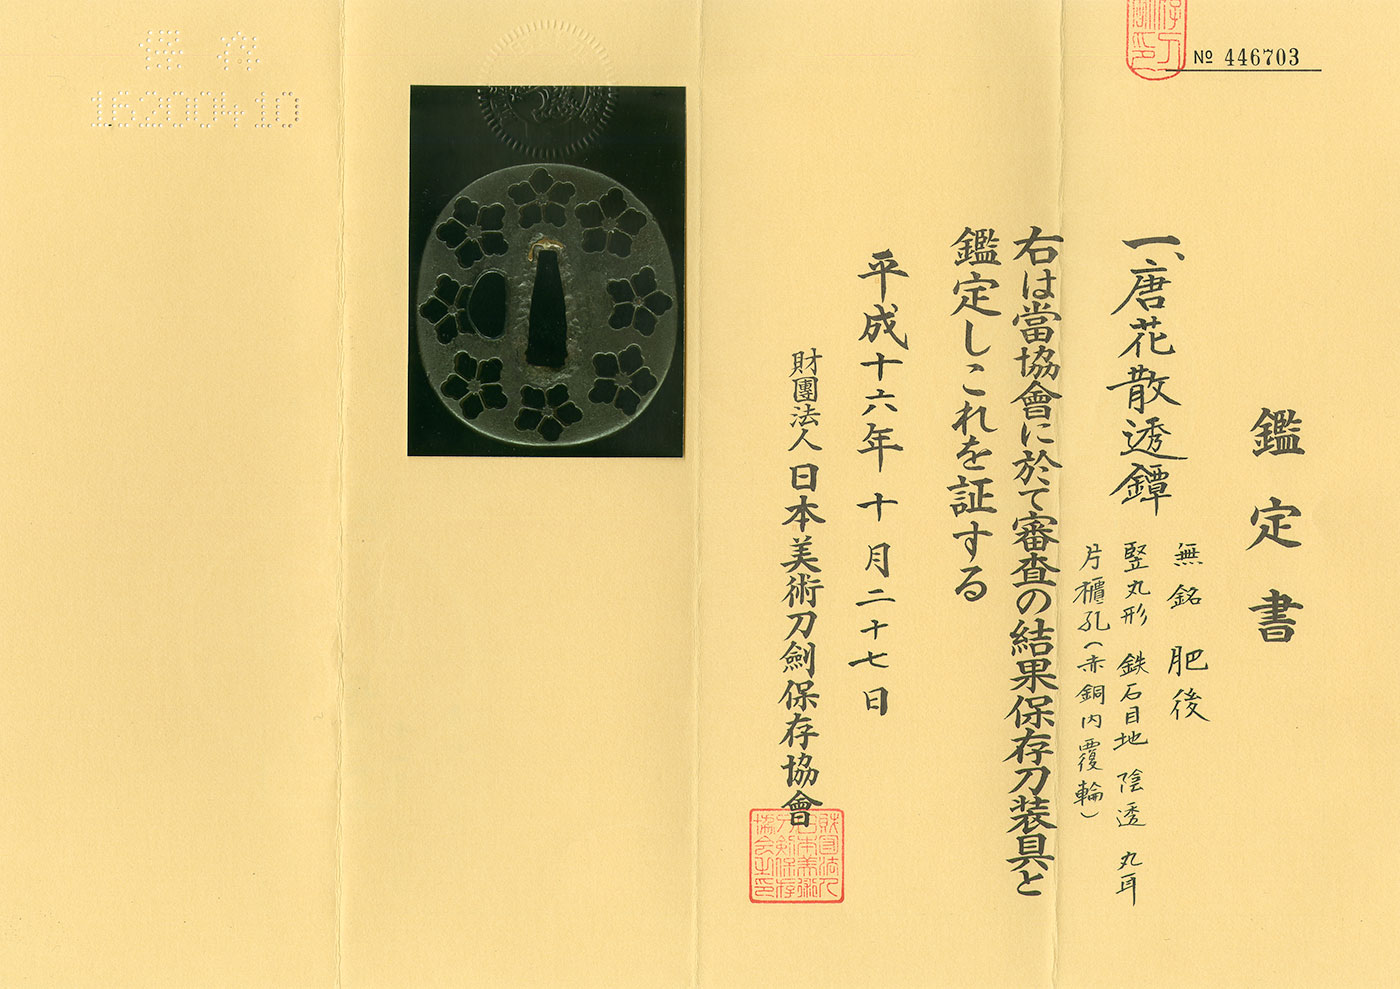 № 446703
鑑定書
一、唐花散透鐔
無銘 肥後
竪丸形 鉄石目地 陰透 丸耳
片櫃孔(赤銅内覆輪)
右は當協會に於て審査の結果保存刀装具と
鑑定しこれを証する
平成十六年十月二十七日
財團法人日本美術刀劍保存協會
財団法人日本美術刀剣保存協会之印
保存
16200410